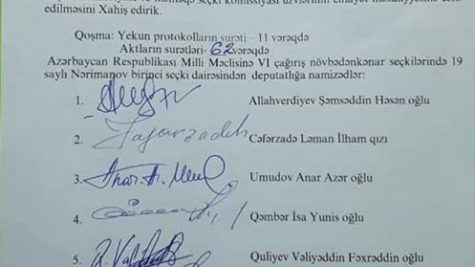 edilməsini Xahiş edirik.
Qoşma: Yekun protokolların surəti – 11 vərəqdə
Aktların surətləri- 62 vərəqdə
Azərbaycan Respublikası Milli Məclisinə VI çağırış növbədənkənar seçkilərində 19
saylı Nərimanov birinci seçki dairəsindən deputatlığa namizədlər:
1. Allahverdiyev Şəmsəddin Həsən oğlu
2. Jafarzadeh Cəfərzadə Ləman İlham qızı
3. Anar. A. Umudov Anar Azər oğlu
4. Qəmbər İsa Yunis oğlu
5. Quliyev Vəliyəddin Fəxrəddin oğlu